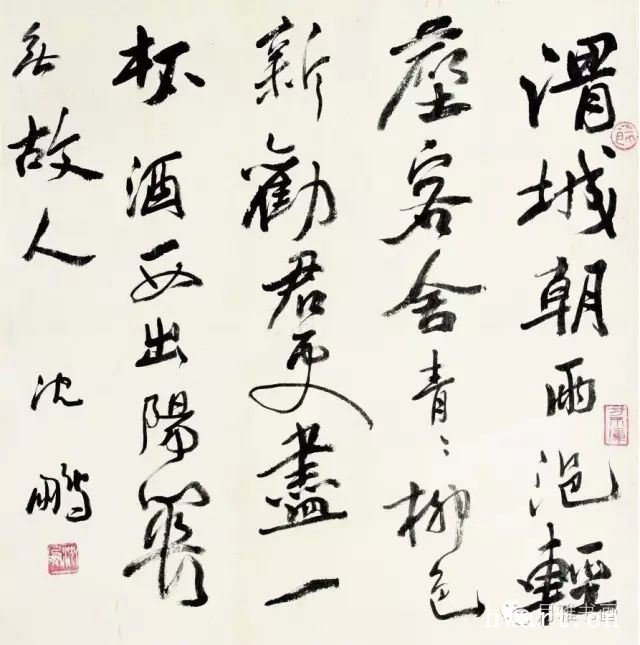 渭城朝雨浥輕
塵客舍青〻柳色
新勸君更盡一
杯酒西出陽關
無故人
沈鵬